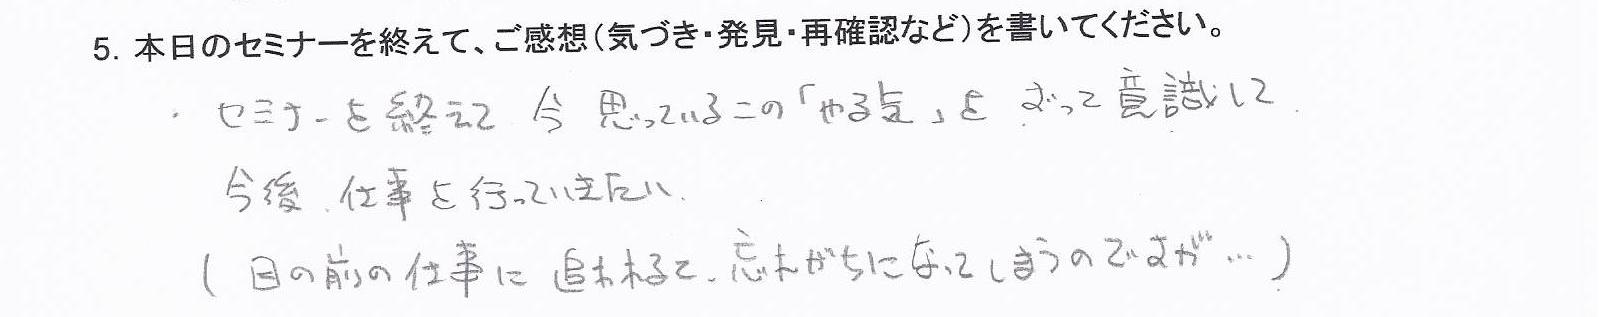 5. 本日のセミナーを終えて、ご感想（気づき・発見・再確認など）を書いてください。
・ セミナーを終えて 今 思っているこの「やる気」を ずって意識して
今後、仕事を行っていきたい。
( 目の前の仕事に 追われると、忘れがちになってしまうのですが… )